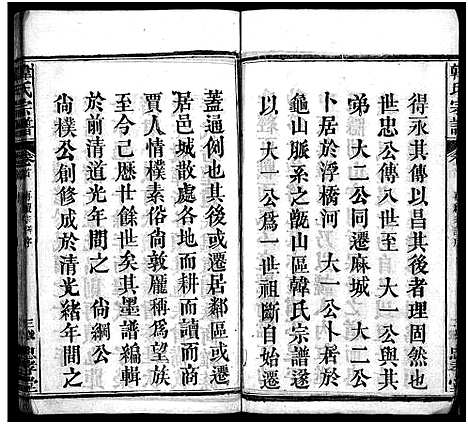 韓氏宗譜
得永其傳以昌其後者理固然也
世忠公傳八世至　大一公與其
弟　大二公同遷麻城　大二公
卜居於浮橋河　大一公卜於
龜山脈系之甑山區韓氏宗譜遂
以　大一公爲一世祖斷自始
蓋通例也其後或遷居鄰區或遷
居邑城散處各地而耕而讀而商
賈人情樸素俗尙敦龐稱爲望族
至今已歷廿餘世矣其墨譜編輯
於前清道光年間之　尙綱公
尙樸公創修成於清光緒年間之
韓氏宗譜
卷首